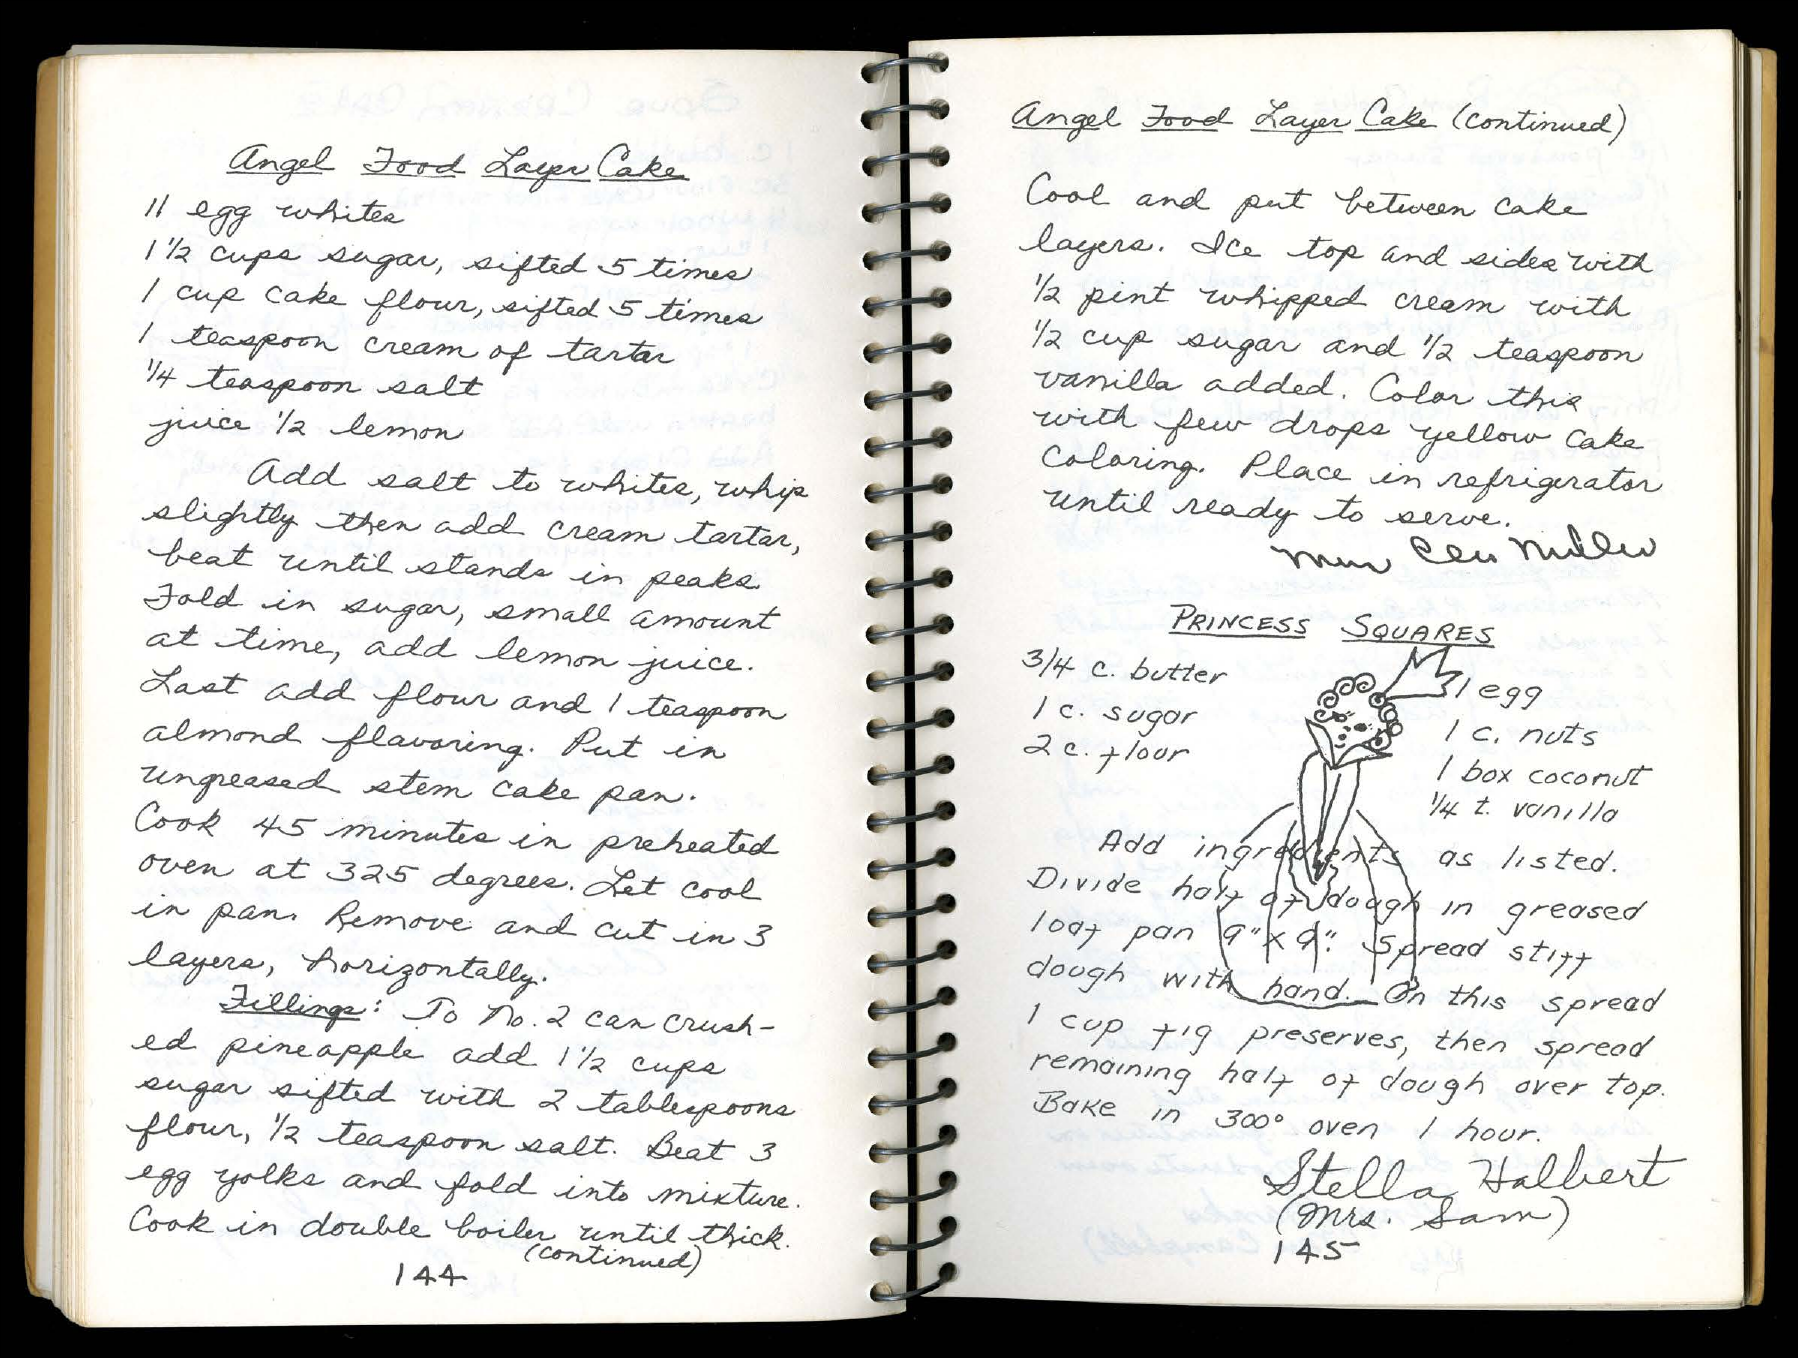 Angel Food Layer Cake
11 egg whites
1 1/2 cups sugar, sifted 5 times
1 cup cake flour, sifted 5 times
1 teaspoon cream of tartar
1/4 teaspoon salt
juice 1/2 lemon
Add salt to whites, whip
slightly then add cream tartar,
beat until stands in peaks
Fold in sugar, small amount
at time, add lemon juice.
Last add flour and 1 teaspoon
almond flavoring. Put in
ungreased stem cake pan.
Cook 45 minutes in preheated
oven at 325 degrees. Let cool
in pan. Remove and cut in 3
layers, horizontally.
Fillings: To No. 2 can crush-
ed pineapple add 1 1/2 cups
sugar sifted with 2 tablespoons
flour, 1/2 teaspoon salt. Beat 3
egg yolks and fold into mixture.
Cook in double boiler until thick.
(continued)
144
Angel Food Layer Cake (continued)
Cool and put between cake
layers. Ice top and sides with
1/2 pint whipped cream with
1/2 cup sugar and 1/2 teaspoon
vanilla added. Color this
with few drops yellow cake
coloring. Place in refrigerator
until ready to serve.
Miller
PRINCESS SQUARES
3/4 c. butter
1 c. sugar
2 c. flour
1 egg
1 c. nuts
1 box coconut
1/4 t. vanilla
Add ingredients as listed.
Divide half of dough in greased
loaf pan 9" x 9". Spread stiff
dough with hand. On this spread
1 cup fig preserves, then spread
remaining half of dough over top.
Bake in 300° oven 1 hour.
Stella Halbert
(Mrs. Sam)
145